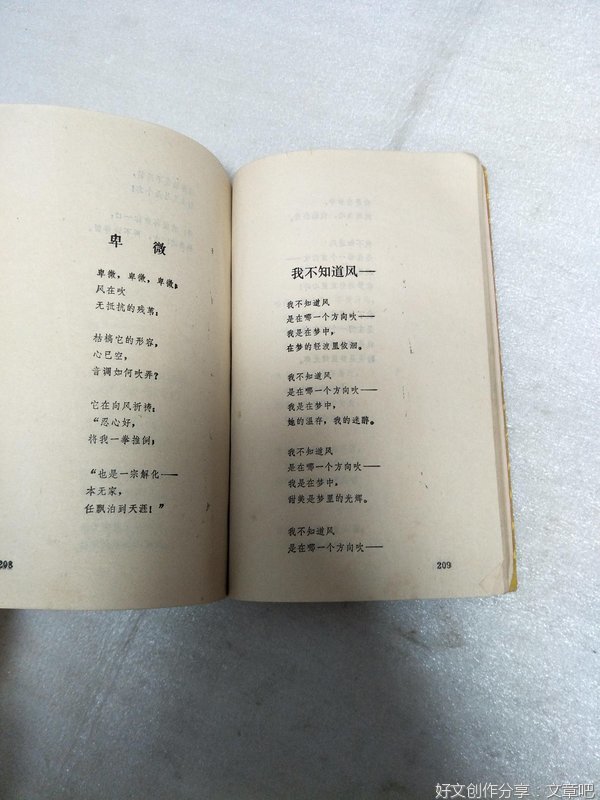 卑 微
卑微，卑微，卑微；
风在吹
无抵抗的残苇：
枯槁它的形容，
心已空，
音调如何吹弄？
它在向风祈祷：
“忍心好，
将我一拳推倒；
“也是一宗解化——
本无家，
任飘泊到天涯！”
208
我不知道风——
我不知道风
是在哪一个方向吹——
我是在梦中，
在梦的轻波里依洄。
我不知道风
是在哪一个方向吹——
我是在梦中，
她的温存，我的迷醉。
我不知道风
是在哪一个方向吹——
我是在梦中，
甜美是梦里的光辉。
我不知道风
是在哪一个方向吹——
209
好文创作分享：文章吧